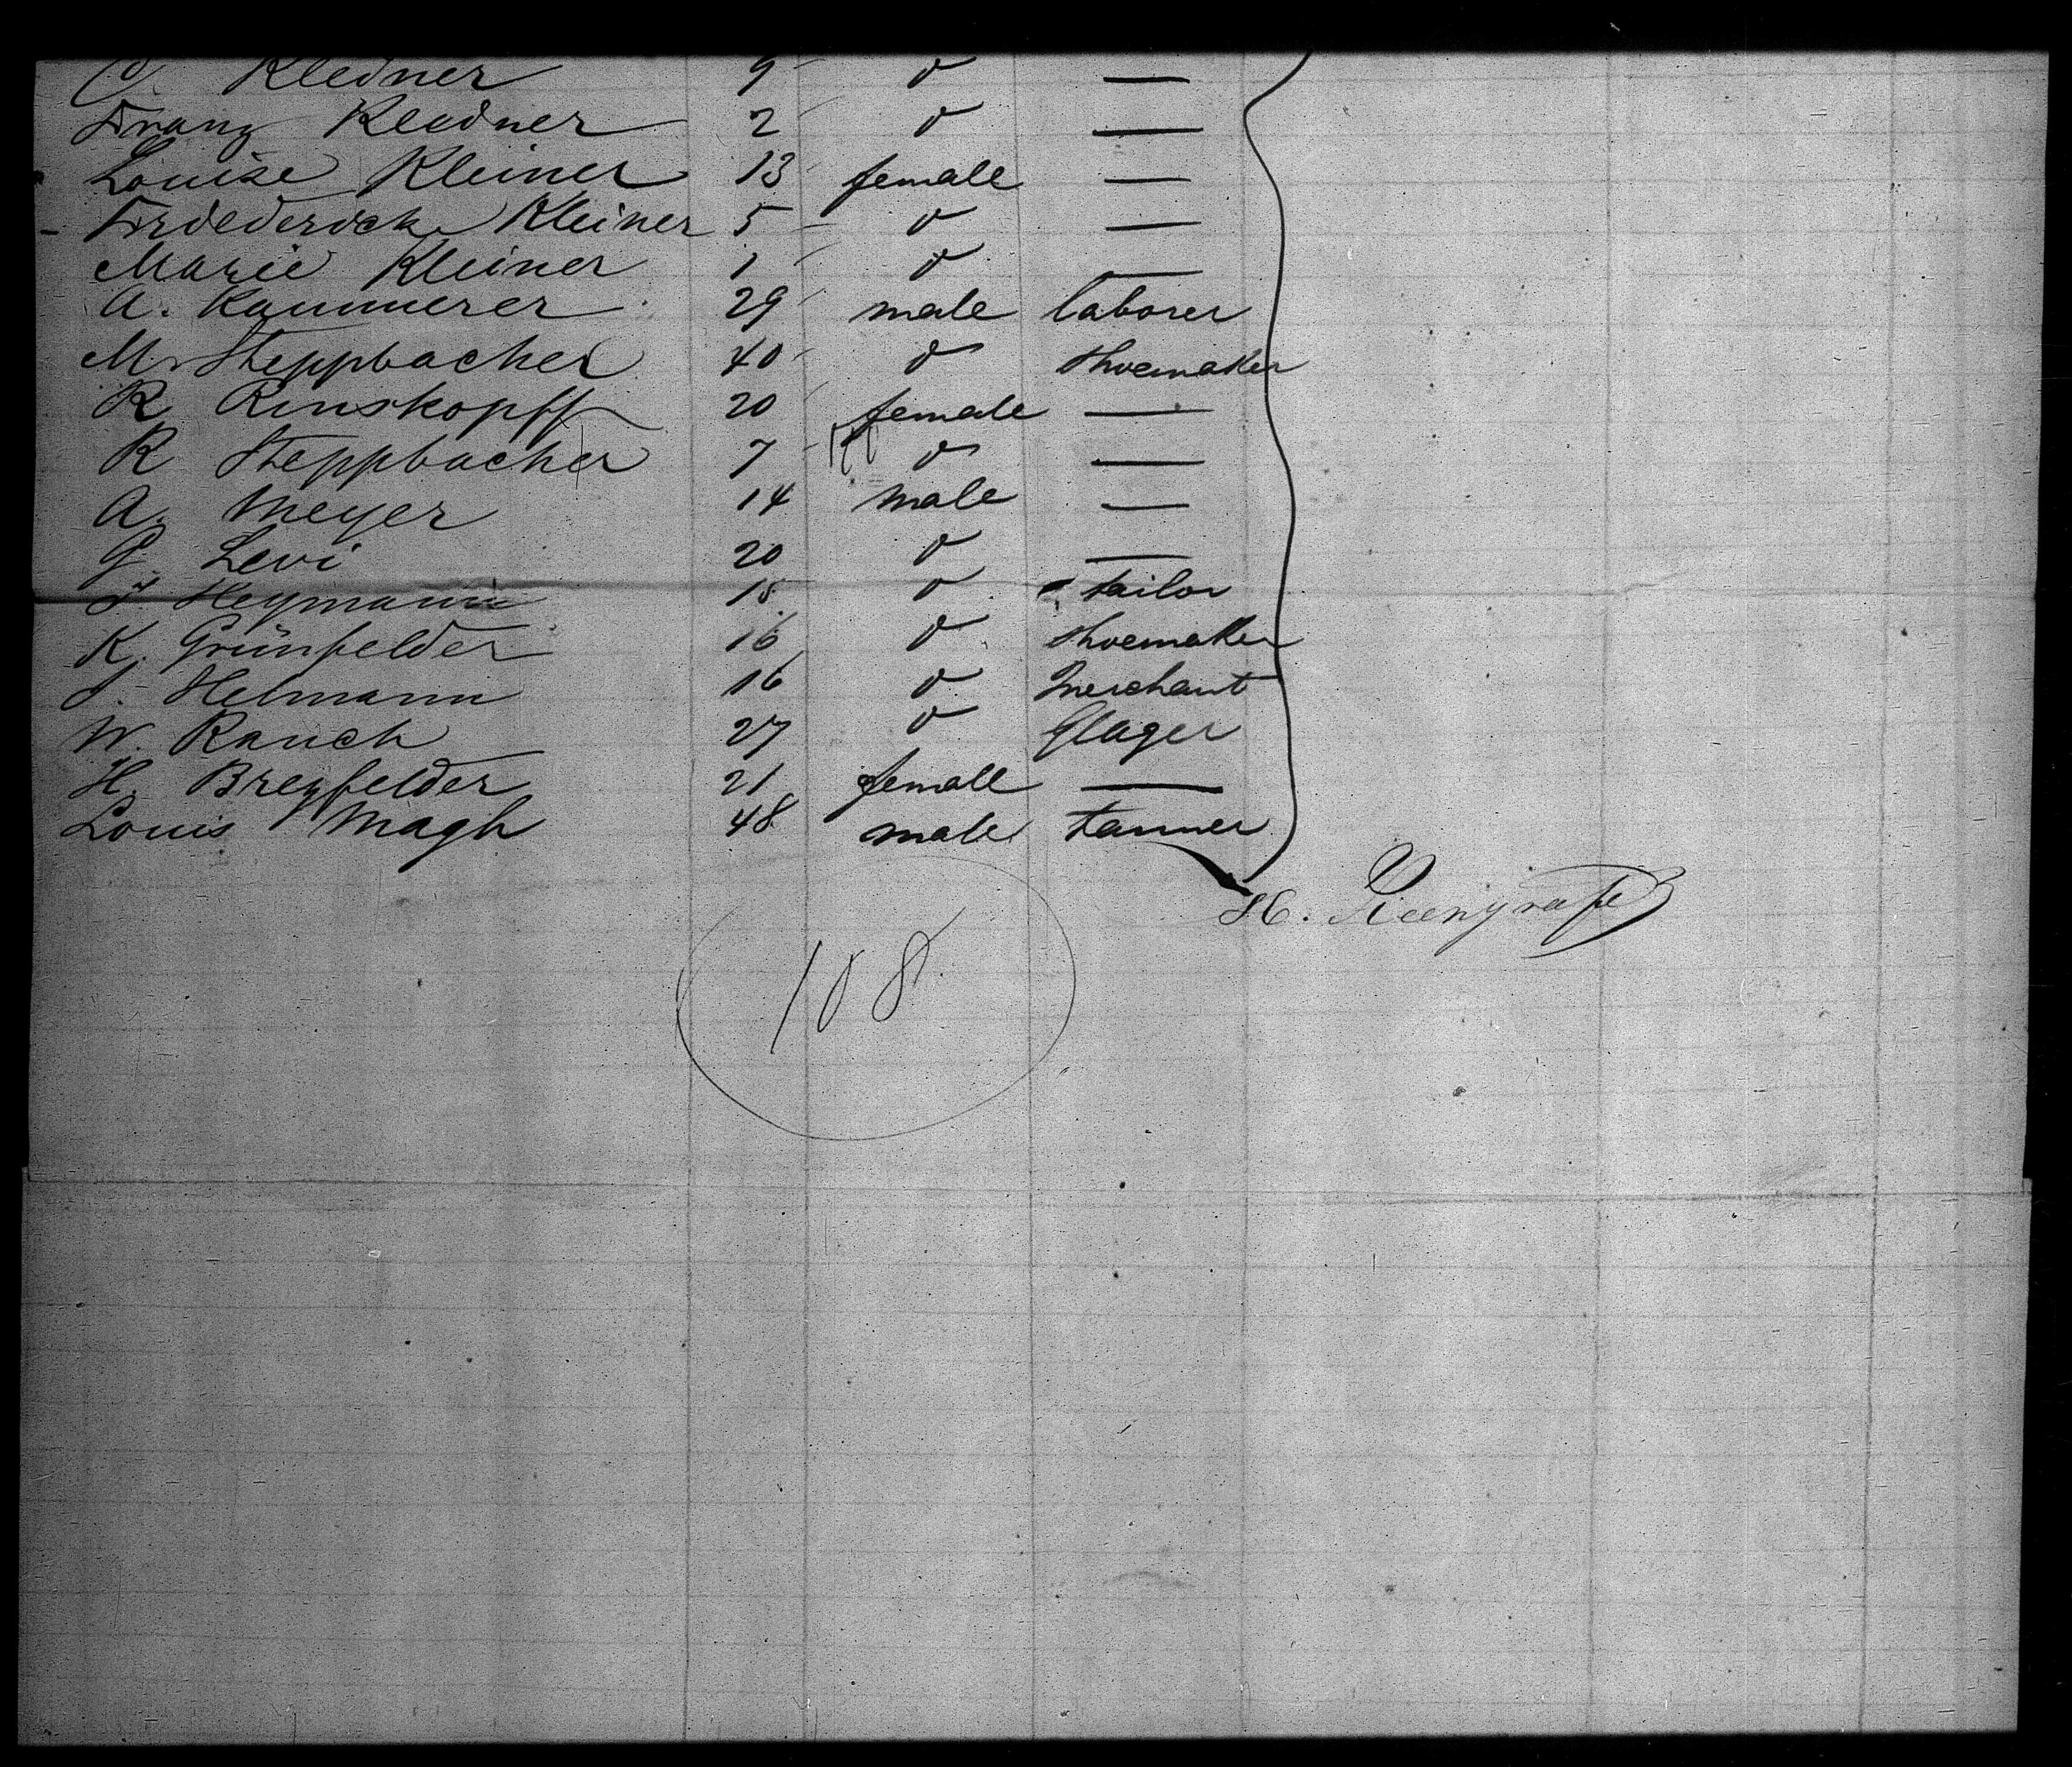 C. Kleiner 9 " —
Franz Kleiner 2 " —
Louise Kleiner 13 female —
Friederick Kleiner 5 " —
Marie Kleiner 1 " —
A. Kammerer 29 male laborer
M. Steppbacher 40 " shoemaker
R Rinskopff 20 female —
R Steppbacher 7 " —
A. Meyer 14 male —
G. Levi 20 " —
Heymann 18 " tailor
K. Grünfelder 16 " shoemaker
J. Helmann 16 " Merchant
W. Rauch 27 " Glazer
H. Breyfelder 21 female —
Louis Magh 48 male tanner
H.
108